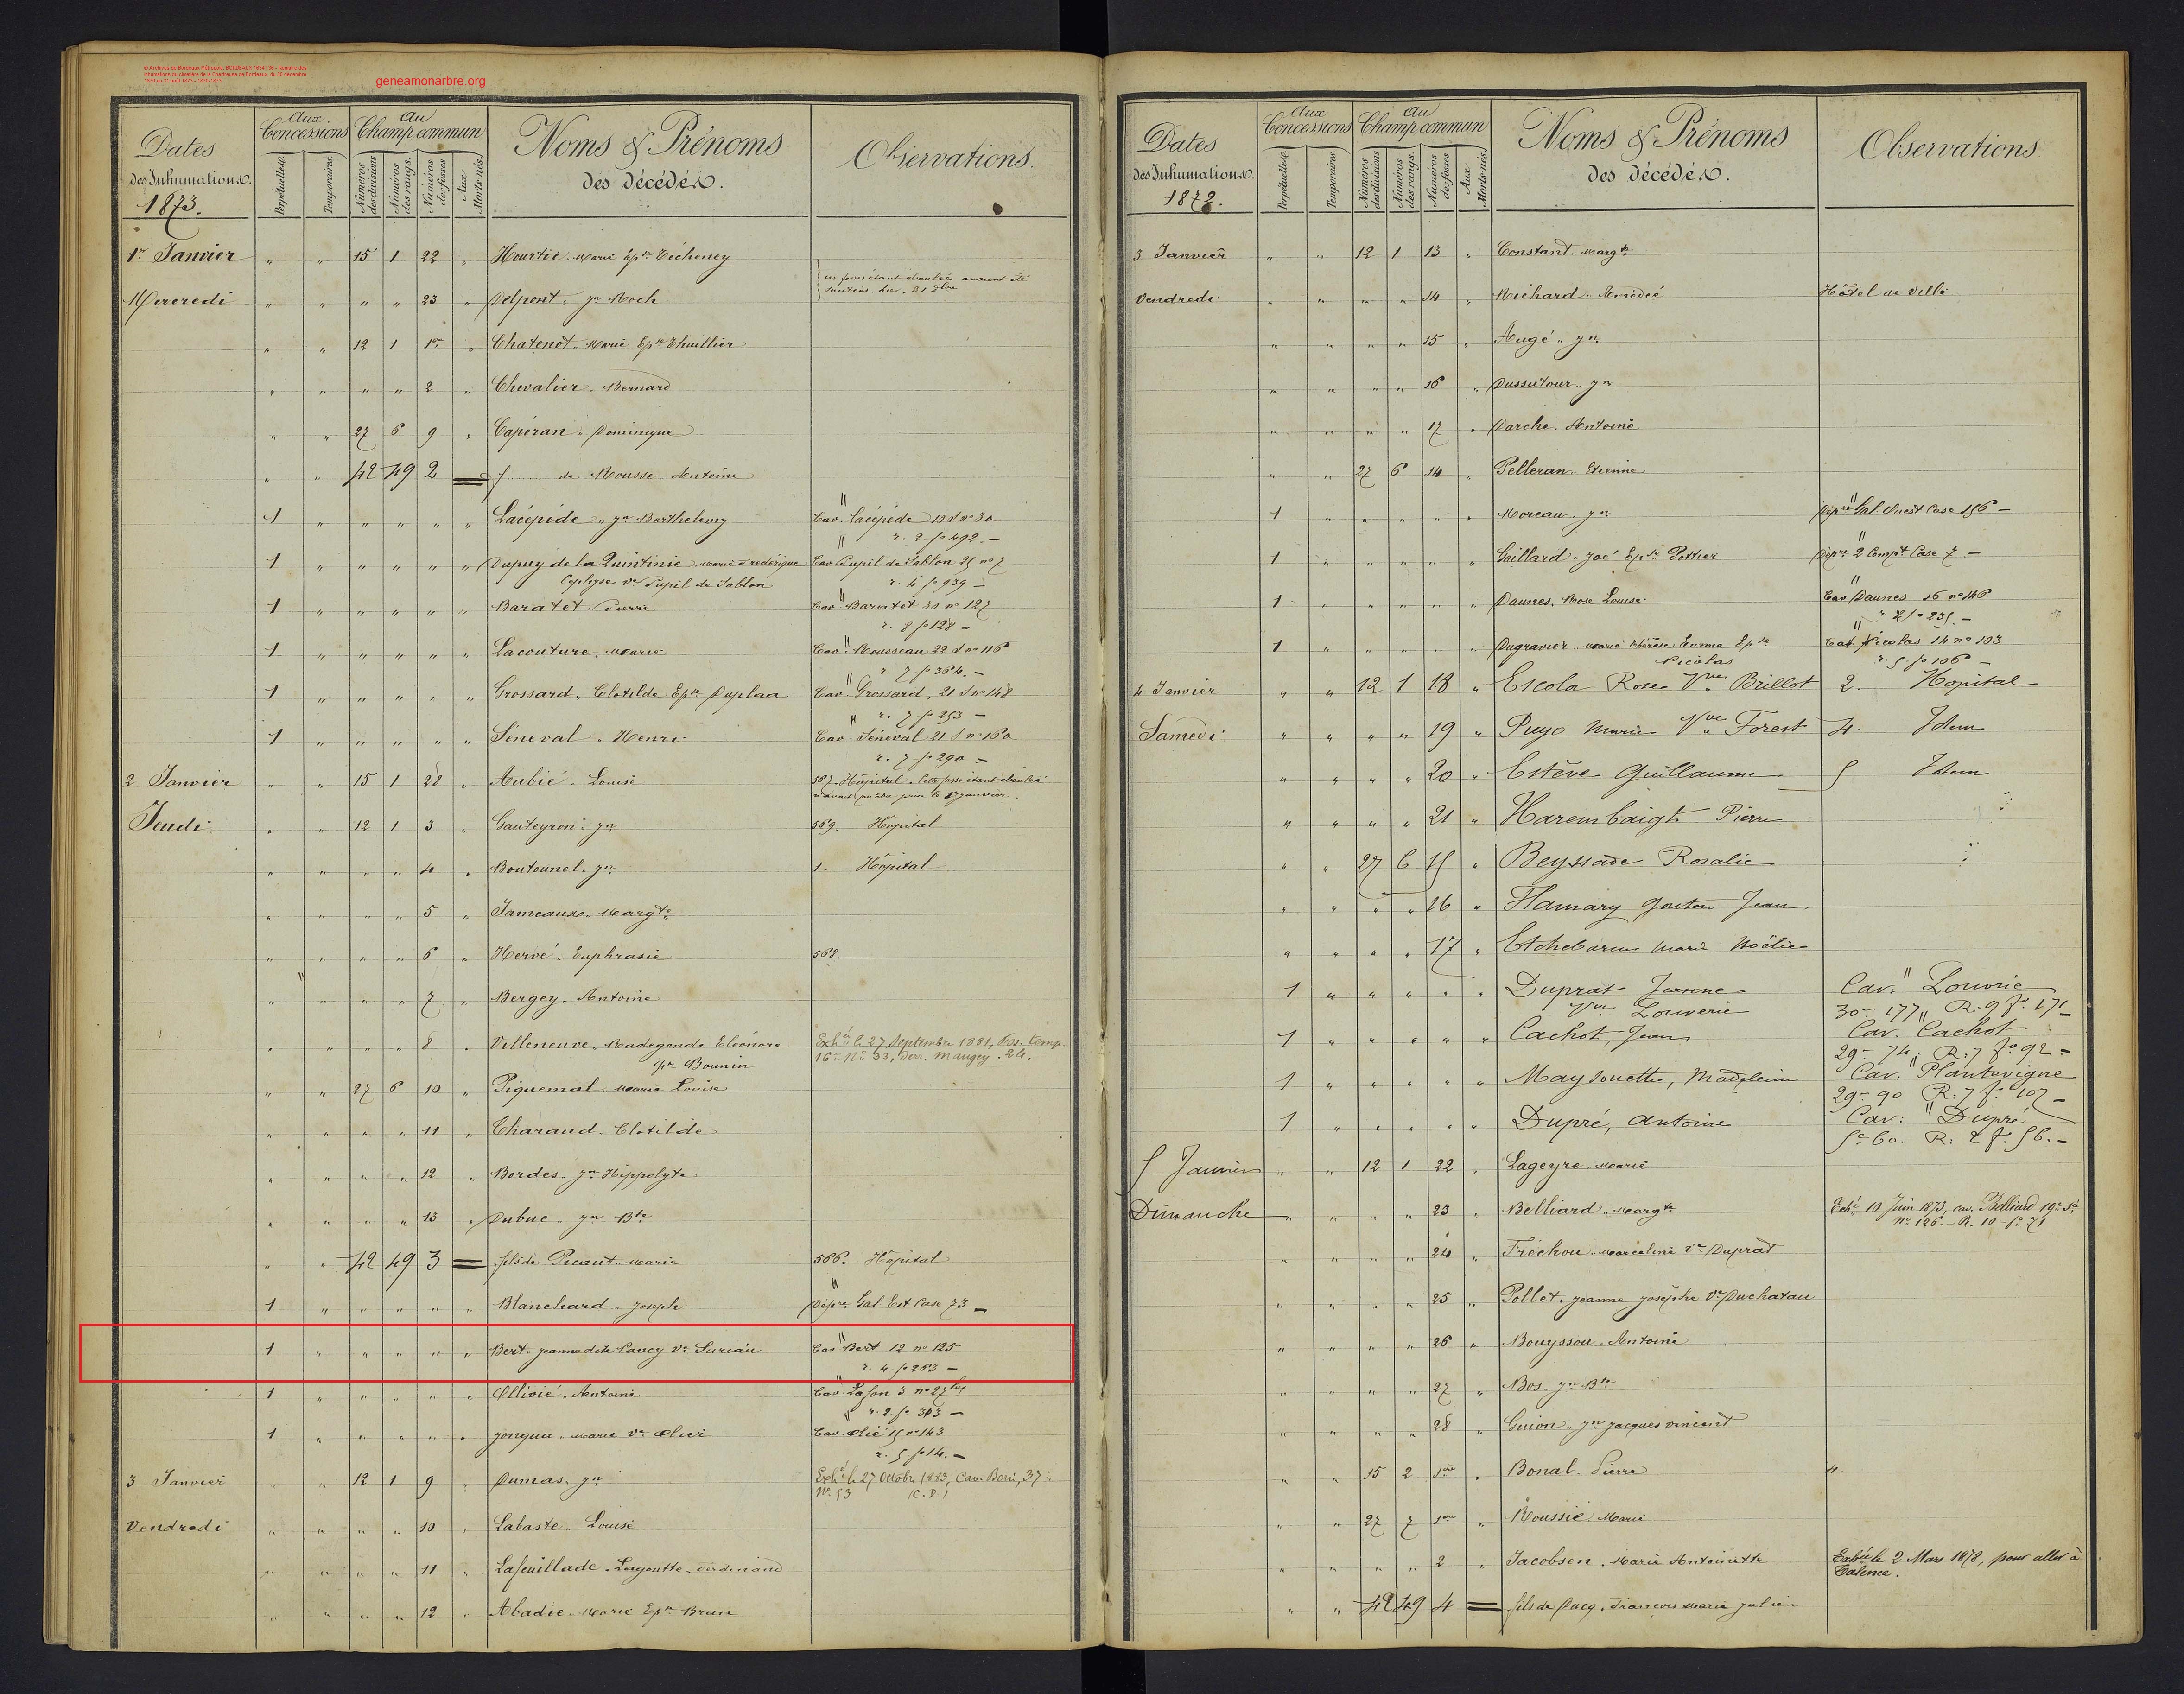 © Archives de Bordeaux Métropole, BORDEAUX
geneamonarbre.org
Dates
des Inhumations.
1873.
Aux Concessions
Perpétuelles
Temporaires
Au Champ commun
Numéros des divisions
Numéros des rangs
Numéros des fosses
Aux Morts-nés
Noms & Prénoms
des décédés.
Observations.
1er Janvier " " 15 1 22 " Hourtié. Marie Epse Técheney
Mercredi " " " " 23 " Delpont. jn Roch
" " 12 1 1er " Chatenét. Marie Epse Thuillier
" " " " 2 " Chevalier. Bernard
" " 27 6 9 " Capéran. Dominique
" " 42 49 2 = f. de Mousse. Antoine
1 " " " " " Lacépède. jn Barthelemy Cav. Lacépède 19 S no 30
r. 2 fo 492. —
1 " " " " " Dupuy de la Quintinie. Marie Frédérique Cav Pupil de Sablon 25 no 7
Cephyse Ve Pupil de Sablon r. 4 fo 939 —
1 " " " " " Baratet. Pierre Cav. Baratet 33 no 127
r. 8 fo 128 —
1 " " " " " Lacouture. Marie Cav. Rousseau 22 S no 116
r. 7 fo 364. —
1 " " " " " Grossard. Clotilde Epse Duplaa Cav. Grossard. 21 S no 148
r. 7 fo 253 —
1 " " " " " Séneval. Henri Cav. Séneval 21 S no 160
r. 7 fo 290 —
2 Janvier " " 15 1 28 " Aubié. Louise 587. Hôpital. Cette fosse étant éboulée
Jeudi " " 12 1 3 " Gauteyron. jn 589. Hôpital
" " " " 4 " Boutounel. jn 1. Hôpital
" " " " 5 " Jameaux. Margte
" " " " 6 " Hervé. Euphrasie 582.
" " " " 7 " Bergey. Antoine
" " " " 8 " Villeneuve. Radegonde Eléonore Exhée le 27 Septembre 1881, Fos. Temp.
Bounin
" " 27 6 10 " Piquemal. Marie Louise
" " " " 11 " Charaud. Clotilde
" " " " 12 " Bordes. jn Hippolyte
" " " " 13 " Dubuc. jn Bte
" " 42 49 3 = fils de Picaut. Marie 586. Hôpital
1 " " " " " Blanchard. Joseph Dépre Gal. Est Case 73 —
1 " " " " " Bert. Jeanne dite Cancy Ve Suriau Cav Bert 12 no 125
r. 4 fo 263 —
1 " " " " " Ollivié. Antoine Cav. Lafon 3 no 27 bis
r. 2 fo 303 —
1 " " " " " Jongua. Marie Ve Olié Cav. Olié 15 no 143
r. 5 fo 14. —
3 Janvier " " 12 1 9 " Dumas. jn Exhé le 27 Octobr 1883, Cav. 37
No 53 (C.P.)
Vendredi " " " " 10 " Labaste. Louise
" " " " 11 " Lafeuillade. Lagoutte. Ferdinand
" " " " 12 " Abadie. Marie Epse Brun
Dates
des Inhumations.
1873.
Aux Concessions
Perpétuelles
Temporaires
Au Champ commun
Numéros des divisions
Numéros des rangs
Numéros des fosses
Aux Morts-nés
Noms & Prénoms
des décédés.
Observations
3 Janvier " " 12 1 13 " Constant. Margte
Vendredi " " " " 14 " Richard. Amédée Hôtel de Ville
" " " " 15 " Augé. jn
" " " " 16 " Dussutour. jn
" " " " 17 " Darche. Antoine
" " 27 6 14 " Pelleran. Etienne
1 " " " " " Moreau. jn Dépre Gal. Ouest Case 156 —
1 " " " " " Gaillard. Zoé Epse Pottier Dépre 2 Compt Case 7 —
1 " " " " " Daunes. Rose Louise Cav Daunes 16 no 146
r. 2 fo 235. —
1 " " " " " Dugravier. Marie Thérèse Emma Epse Cav. Nicolas 14 no 103
Nicolas r. 5 fo 106 —
4 Janvier " " 12 1 18 " Escola Rose Vve Brillot 2. Hopital
Samedi " " " " 19 " Puyo Marie Vve Forest 4. Idem
" " " " 20 " Estève Guillaume 5 Idem
" " " " 21 " Harembaigt Pierre
" " 27 6 15 " Beyssade Rosalie
" " " " 16 " Flamary Gaston Jean
" " " " 17 " Etchebarne Marie Noëlie
1 " " " " " Duprat Jeanne Cav. Louvrie
Vve Louverie 30e 177 R. 9 fo 171
1 " " " " " Cachot, Jean Cav. Cachot
29e 74. R: 7 fo 92 —
1 " " " " " Maysonette, Madeleine Cav. Plantevigne
29e 90 R: 7 fo 107 —
1 " " " " " Dupré, Antoine Cav: Dupré
5e 60. R: 2 f. 56. —
5 Janvier " " 12 1 22 " Lageyre. Marie
Dimanche " " " " 23 " Belliard. Margte Exhé 10 Juin 1873, cav. Belliard 19e Sie
no 126. R. 10 fo 71
" " " " 24 " Fréchou. Marceline Ve Duprat
" " " " 25 " Pellet. Jeanne Josèphe Ve Duchatau
" " " " 26 " Bouyssou. Antoine
" " " " 27 " Bos. jn Bte
" " " " 28 " Guion. jn Jacques Vincent
" " 15 2 1er " Bonal. Pierre 4.
" " 27 7 1er " Roussié. Marie
" " " " 2 " Jacobsen. Marie Antoinette Exhée le 2 Mars 1878, pour aller à
Talence.
" " 42 49 4 = fils de Ducq. François Marie Julien